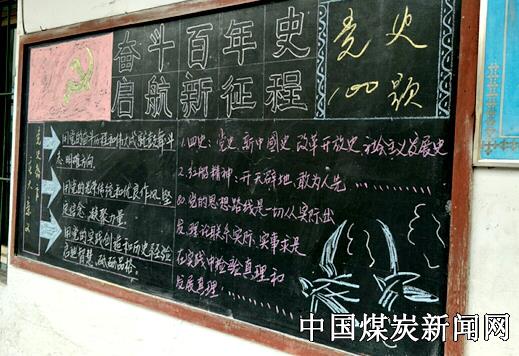 奋斗百年史
启航新征程
党史
100题
党史教育
重大意义
用党的奋斗历程和伟大成就鼓舞斗
志、明确方向
用党的光荣传统和优良作风坚
定信念、凝聚力量
用党的实践创造和历史经验
启迪智慧、砥砺品格
1.四史：党史、新中国史、改革开放史、社会主义发展史
2.红船精神：开天辟地、敢为人先
党的思想路线是一切从实际出
发，理论联系实际，实事求是
在实践中检验真理和
发展真理
中国煤炭新闻网